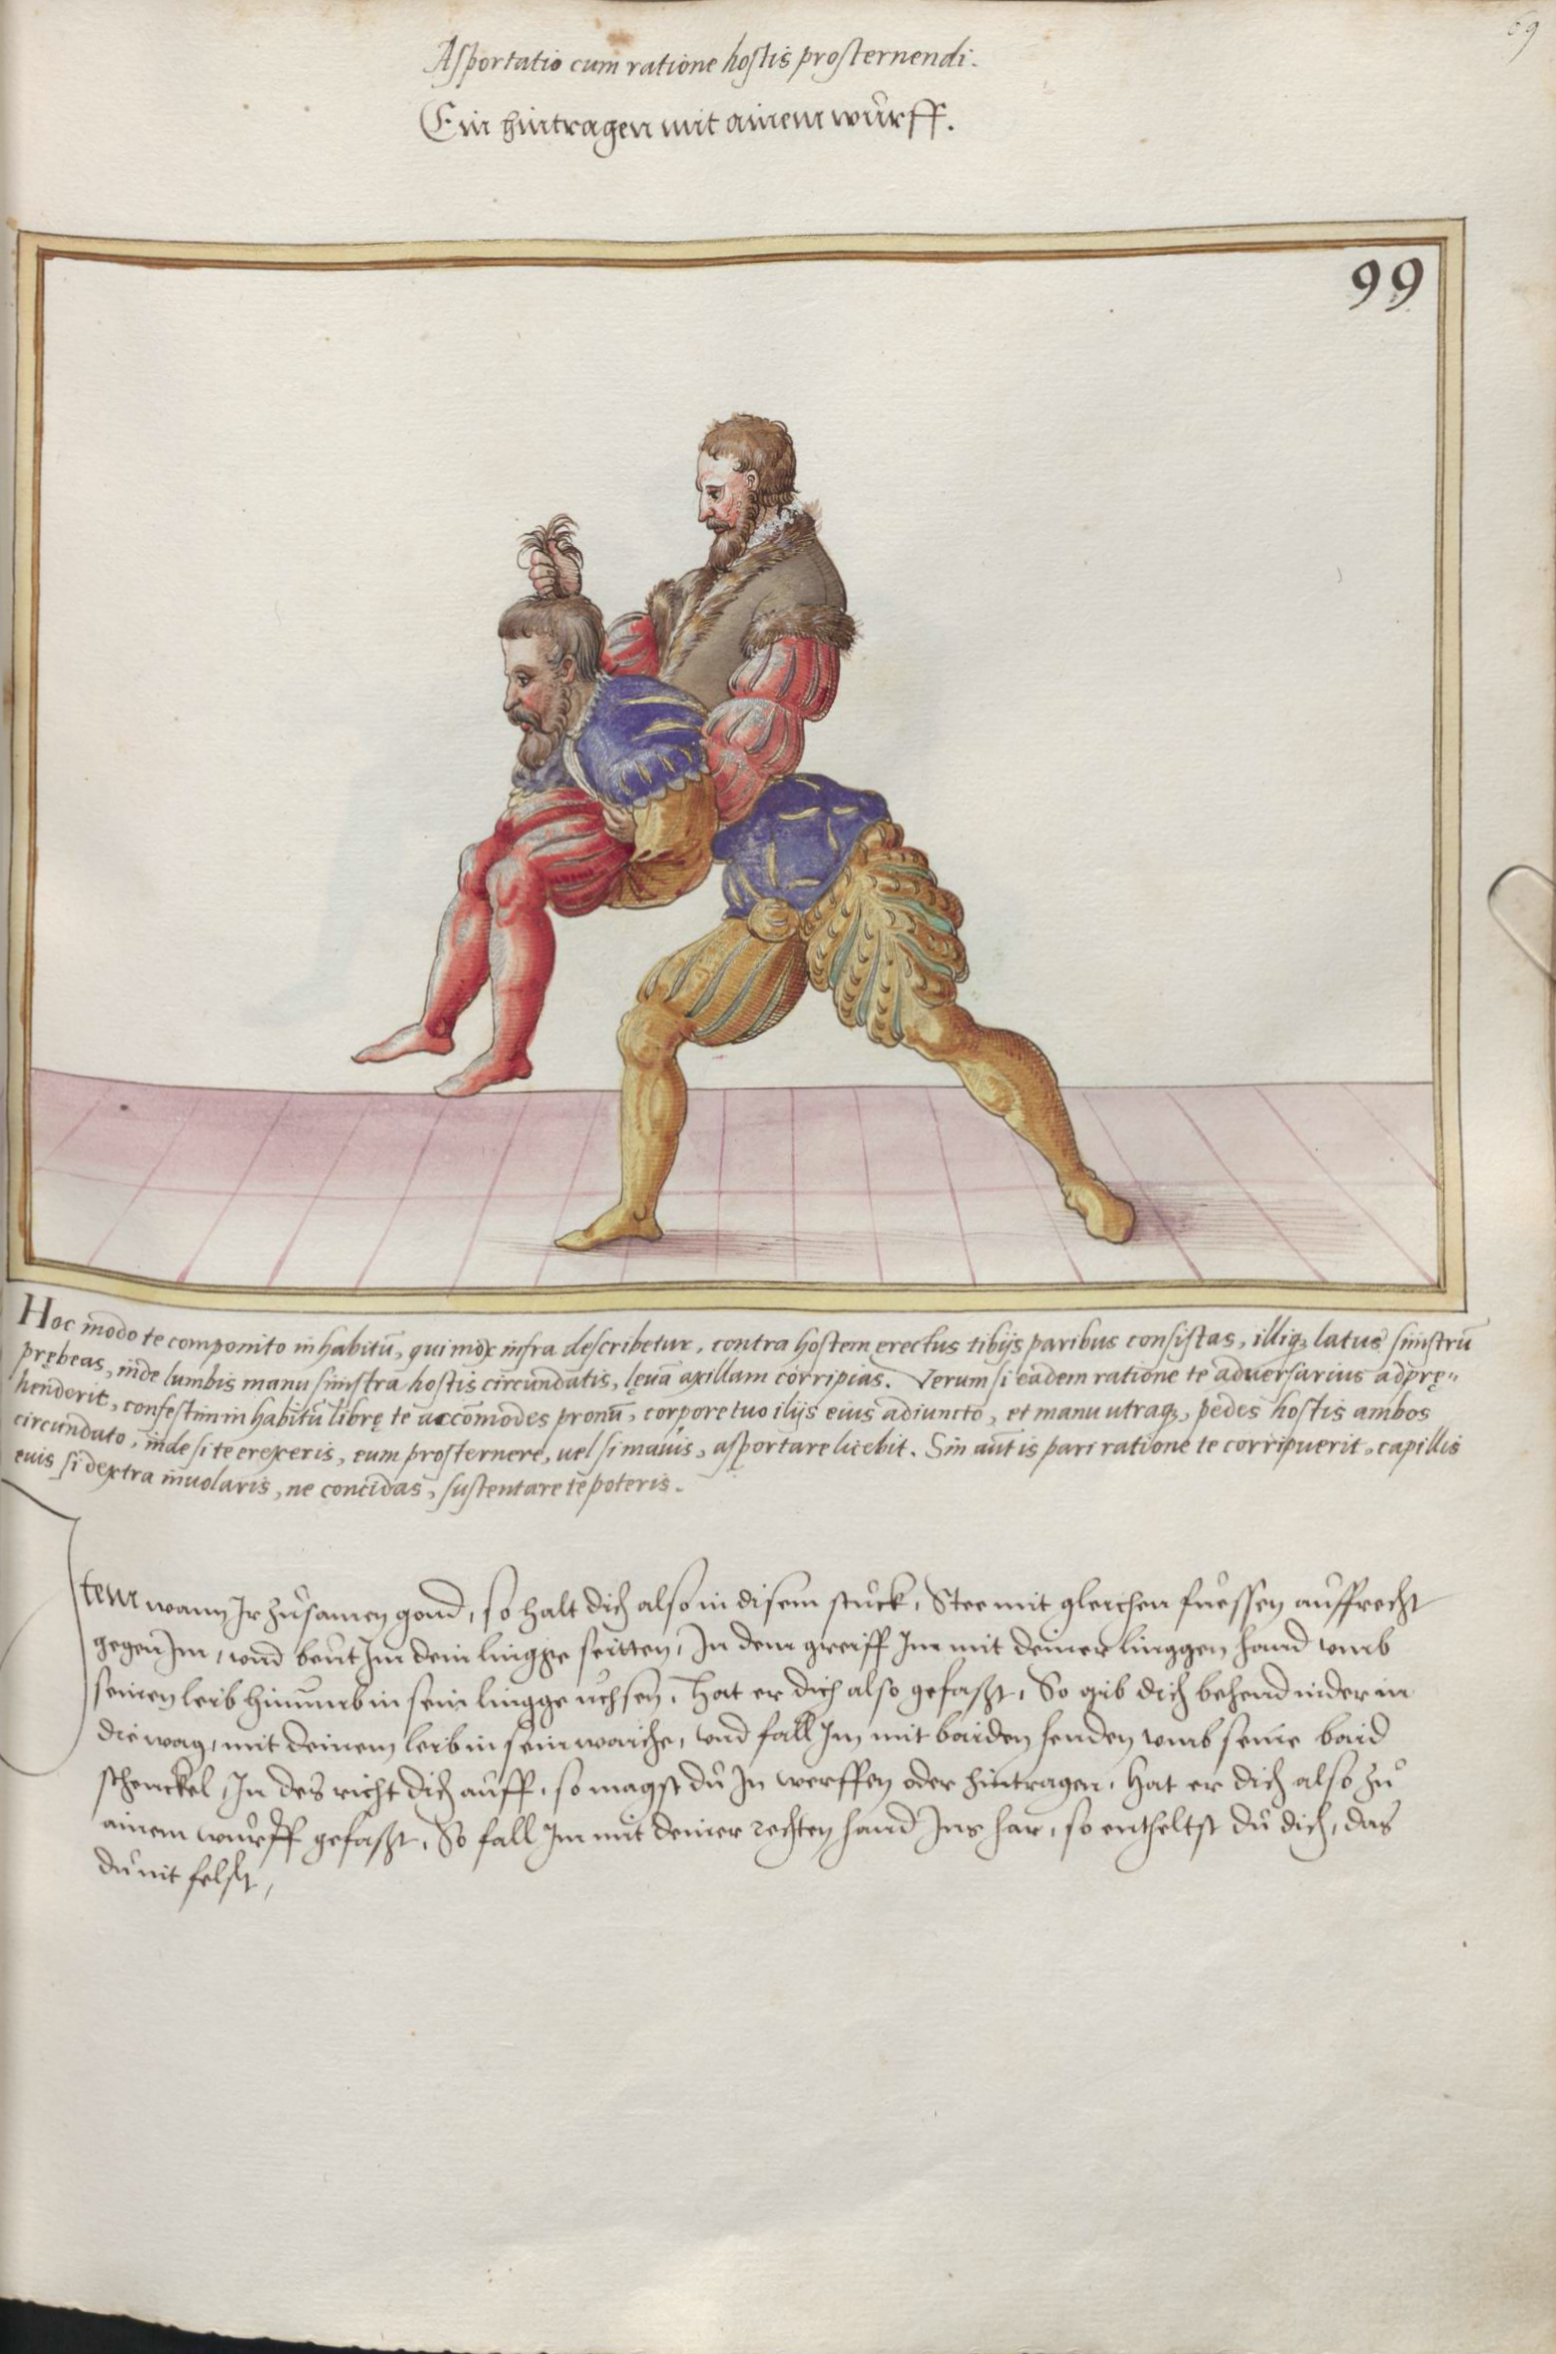 69
Asportatio cum ratione hostis prosternendi.
Ein hintragen mit ainem wůrff.
99
Hoc modo te componito in habitū, qui mox infra describetur, contra hostem erectus tibijs paribus consistas, illiqꝫ latus sinistrū
prębeas, inde lumbis manu sinistra hostis circundatis, lęuā axillam corripias. Verum si eadem ratione te aduersarius adprę„
henderit, confestim in habitū librę te accōmodes pronū, corpore tuo ilijs eius adiuncto, et manu utraqꝫ, pedes hostis ambos
circundato, inde si te erexeris, eum prosternere, uel si mauis, asportare licebit. Sin aūt is pari ratione te corripuerit, capillis
euis si dextra inuolaris, ne concidas, sustentare te poteris.
Item wann Ir zůsamen gond, so halt dich also in disem stuck, Stee mit gleichen fuessen auffrecht
gegen Im, vnd beut Im dein lingge seitten, In dem greiff Im mit deiner linggen hand vmb
seinen leib hinumb in sein lingge uchsen, Hat er dich also gefaßt, So gib dich behend nider in
die wag, mit deinem leib in sein waiche, vnd fall Im mit baiden henden vmb seine baid
schenckel, In des richt dich auff, so magst du In werffen oder hintragen, Hat er dich also zů
ainem wurff gefaßt, So fall Im mit deiner rechten hand Ins har, so entheltst du dich, das
du nit felst,